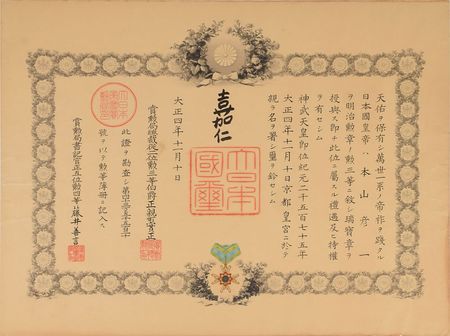 天佑ヲ保有シ萬世一系ノ帝祚ヲ踐タル
日本國皇帝ハ本山彦一
ヲ明治勲章ノ勲三等ニ敍シ瑞寶章ヲ
授與ス即チ此位ニ屬スル禮遇及ヒ特權
ヲ有セシム
神武天皇即位紀元二千五百七十五年
大正四年十一月十日京都皇宮ニ於テ
親ラ名ヲ署シ璽ヲ鈐セシム
嘉仁
大日本
國璽
大正四年十一月十日
賞勲局總裁從二位勲三等伯爵正親町實正
此證ヲ勘査シ
號ヲ以テ勲等簿册ニ記入ス
賞勲局書記官正五位勲四等藤井善言